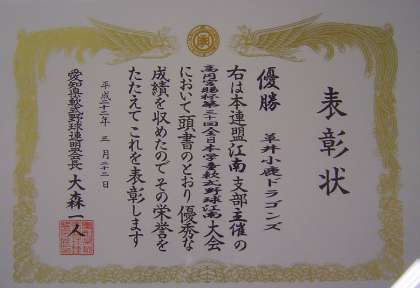 表彰状
優勝 草井小鹿ドラゴンズ
右は本連盟江南支部主催の
高円宮賜杯第三十回全日本学童軟式野球江南大会
において頭書のとおり優秀な
成績を収めたのでその栄誉を
たたえてこれを表彰します
平成二十二年 三月二十二日
愛知県軟式野球連盟会長 大森一人